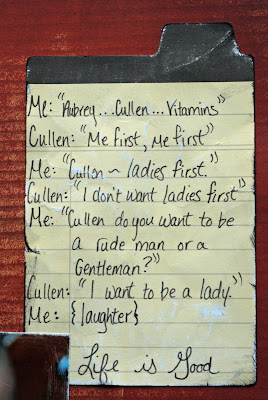 Me: "Aubrey...Cullen...Vitamins"
Cullen: "Me first, Me first"
Me: "Cullen ~ ladies first."
Cullen: "I don't want ladies first"
Me: "Cullen do you want to be
a rude man or a
Gentleman?"
Cullen: "I want to be a lady."
Me: {laughter}
Life is Good